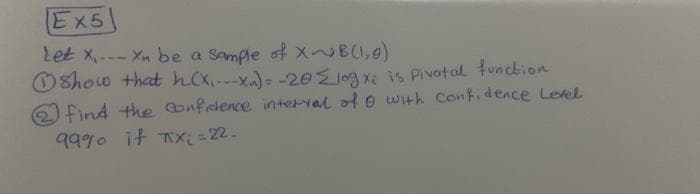 Ex5
Let X1,--- Xn be a Sample of X~B(1,θ)
① Show that h(X1---Xn)= -2θ Σ log xi is Pivotal function
② find the Confidence interval of θ with Confidence Level
99% if πxi=22.